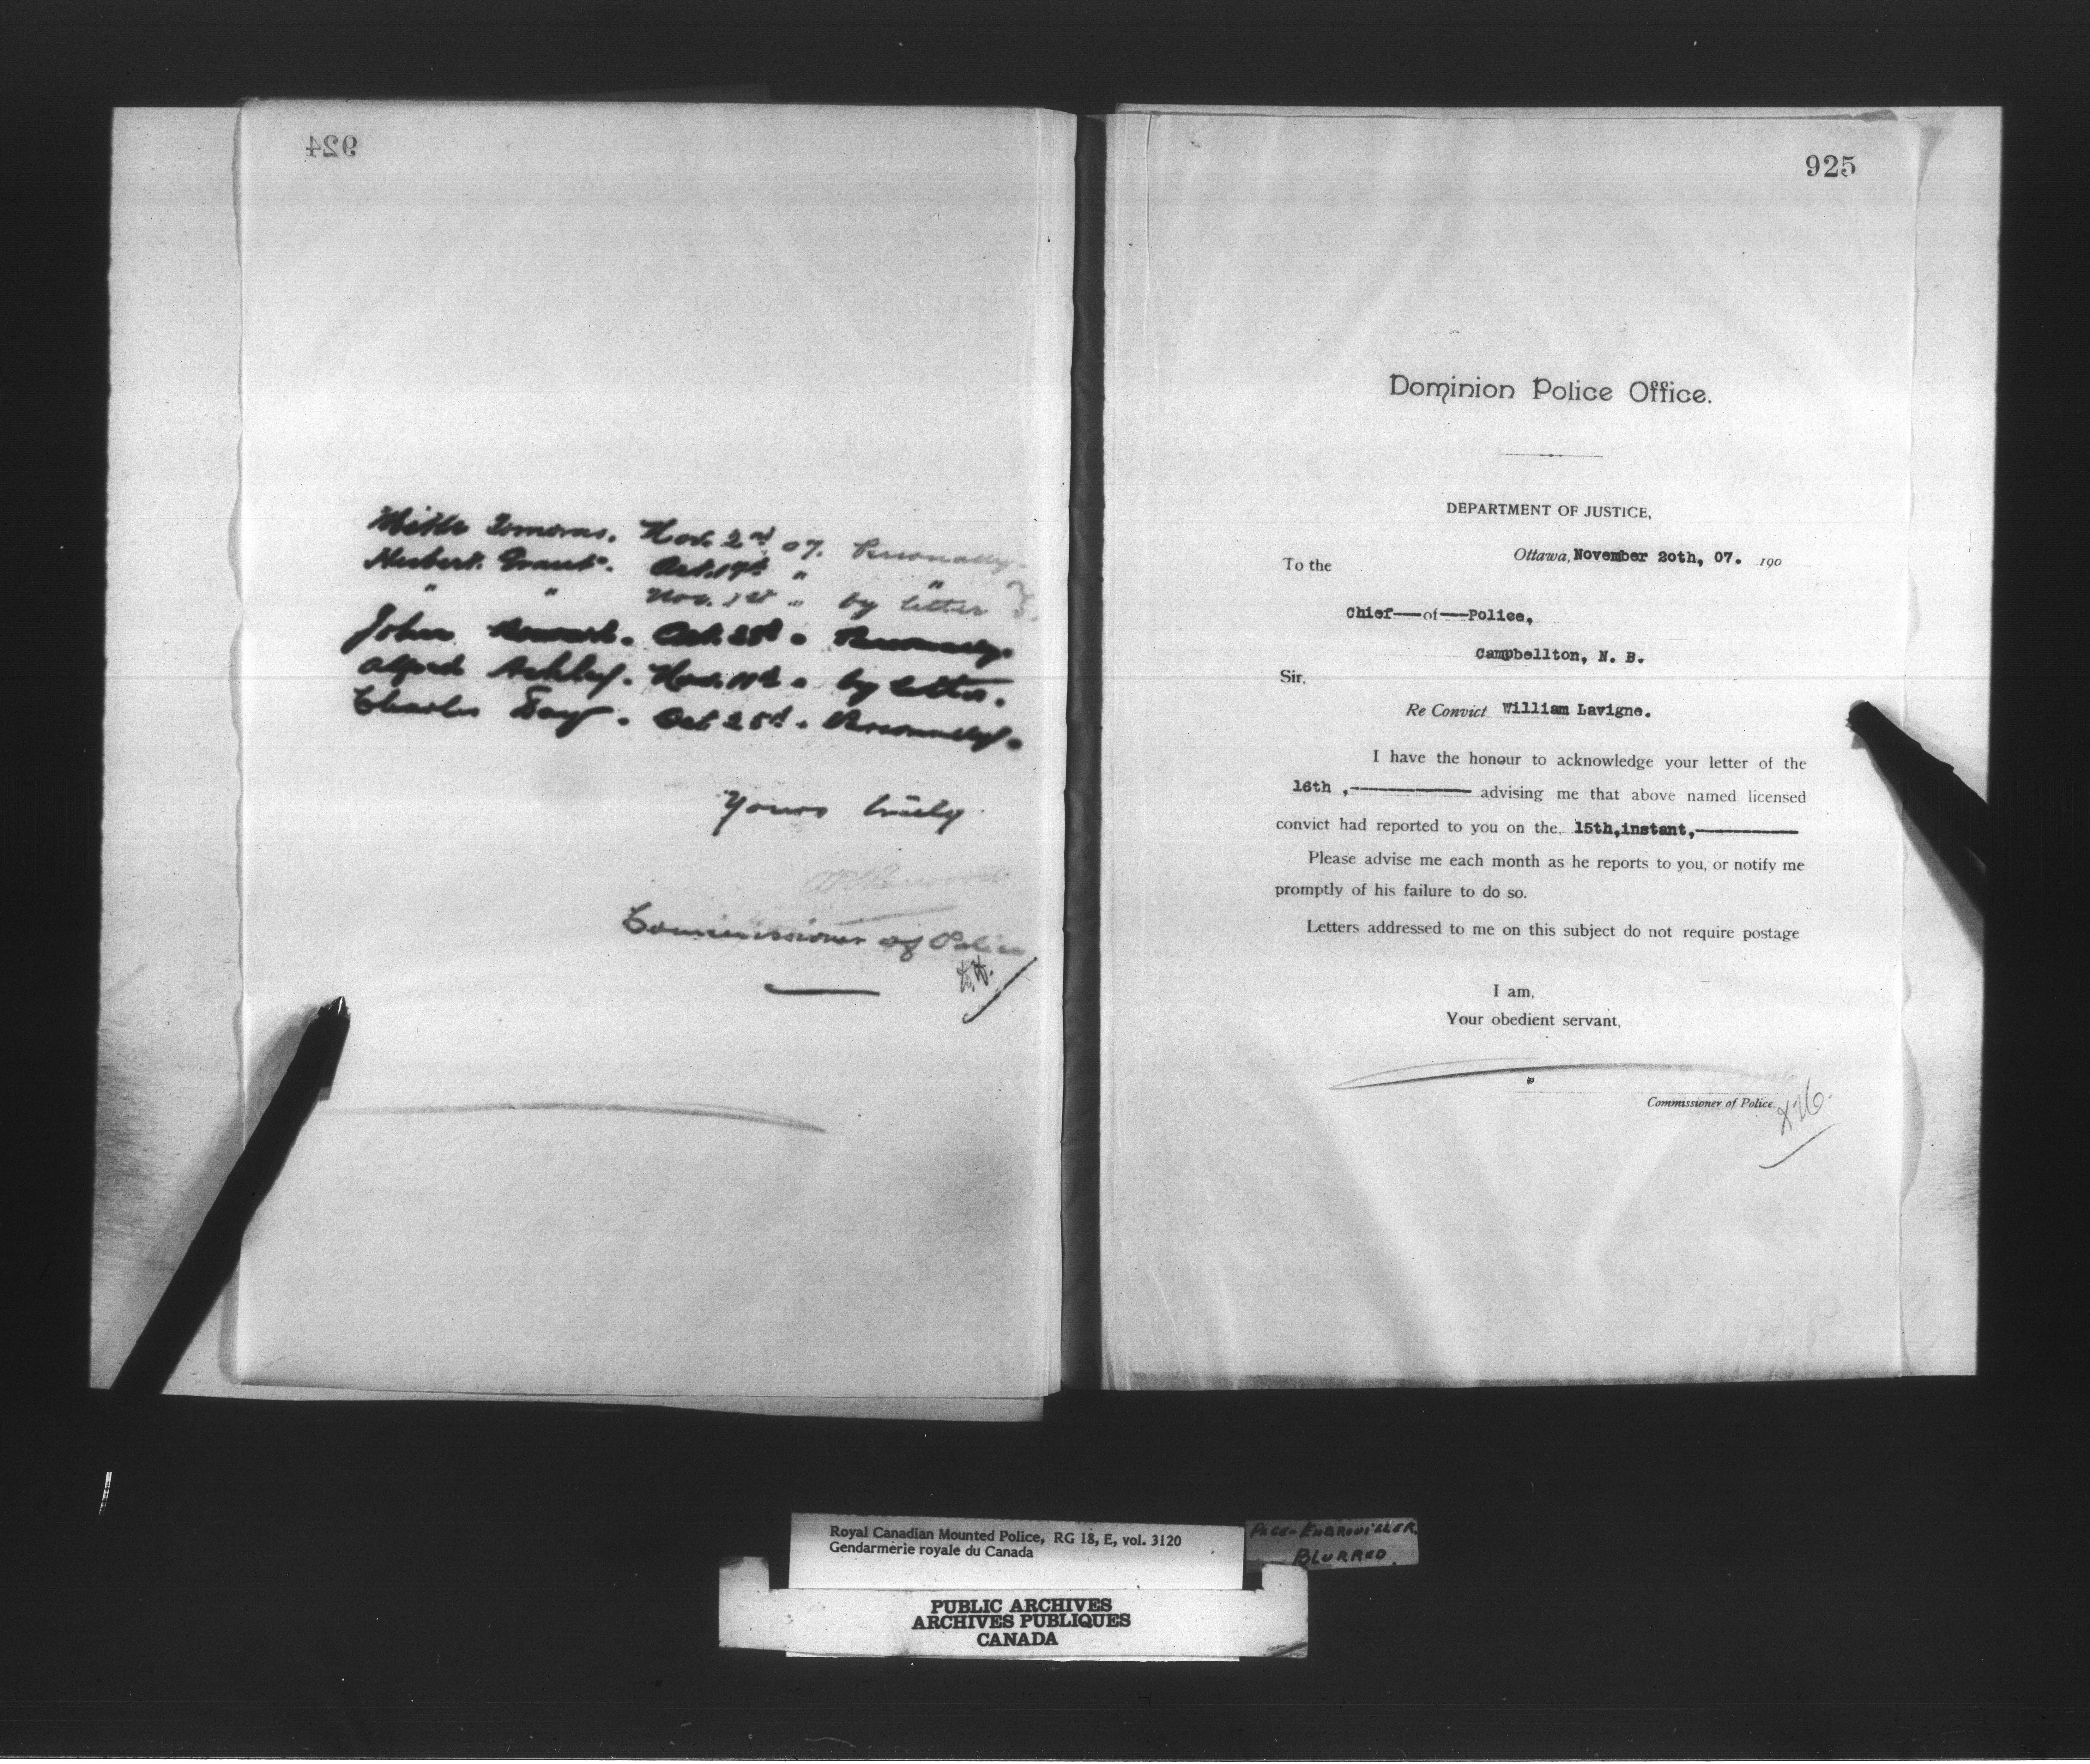 924
Nov. 2nd 07. Personally
Hubert Grant. Oct. 19th "
" " Nov. 1st " by letter
John Oct. 25th " Personally.
Alfred Ashley. Nov. 11th " by letter.
Charles Day. Oct 25th " Personally.
Yours truly
Commissioner of Police
925
Dominion Police Office.
DEPARTMENT OF JUSTICE,
Ottawa, November 20th, 07. 190
To the
Chief—of—Police,
Campbellton, N. B.
Sir,
Re Convict William Lavigne.
I have the honour to acknowledge your letter of the
16th ,— advising me that above named licensed
convict had reported to you on the 15th,instant,—
Please advise me each month as he reports to you, or notify me
promptly of his failure to do so.
Letters addressed to me on this subject do not require postage
I am,
Your obedient servant,
Commissioner of Police.
Royal Canadian Mounted Police, RG 18, E, vol. 3120
Gendarmerie royale du Canada
PAGE-EMBROUILLER.
BLURRED.
PUBLIC ARCHIVES
ARCHIVES PUBLIQUES
CANADA